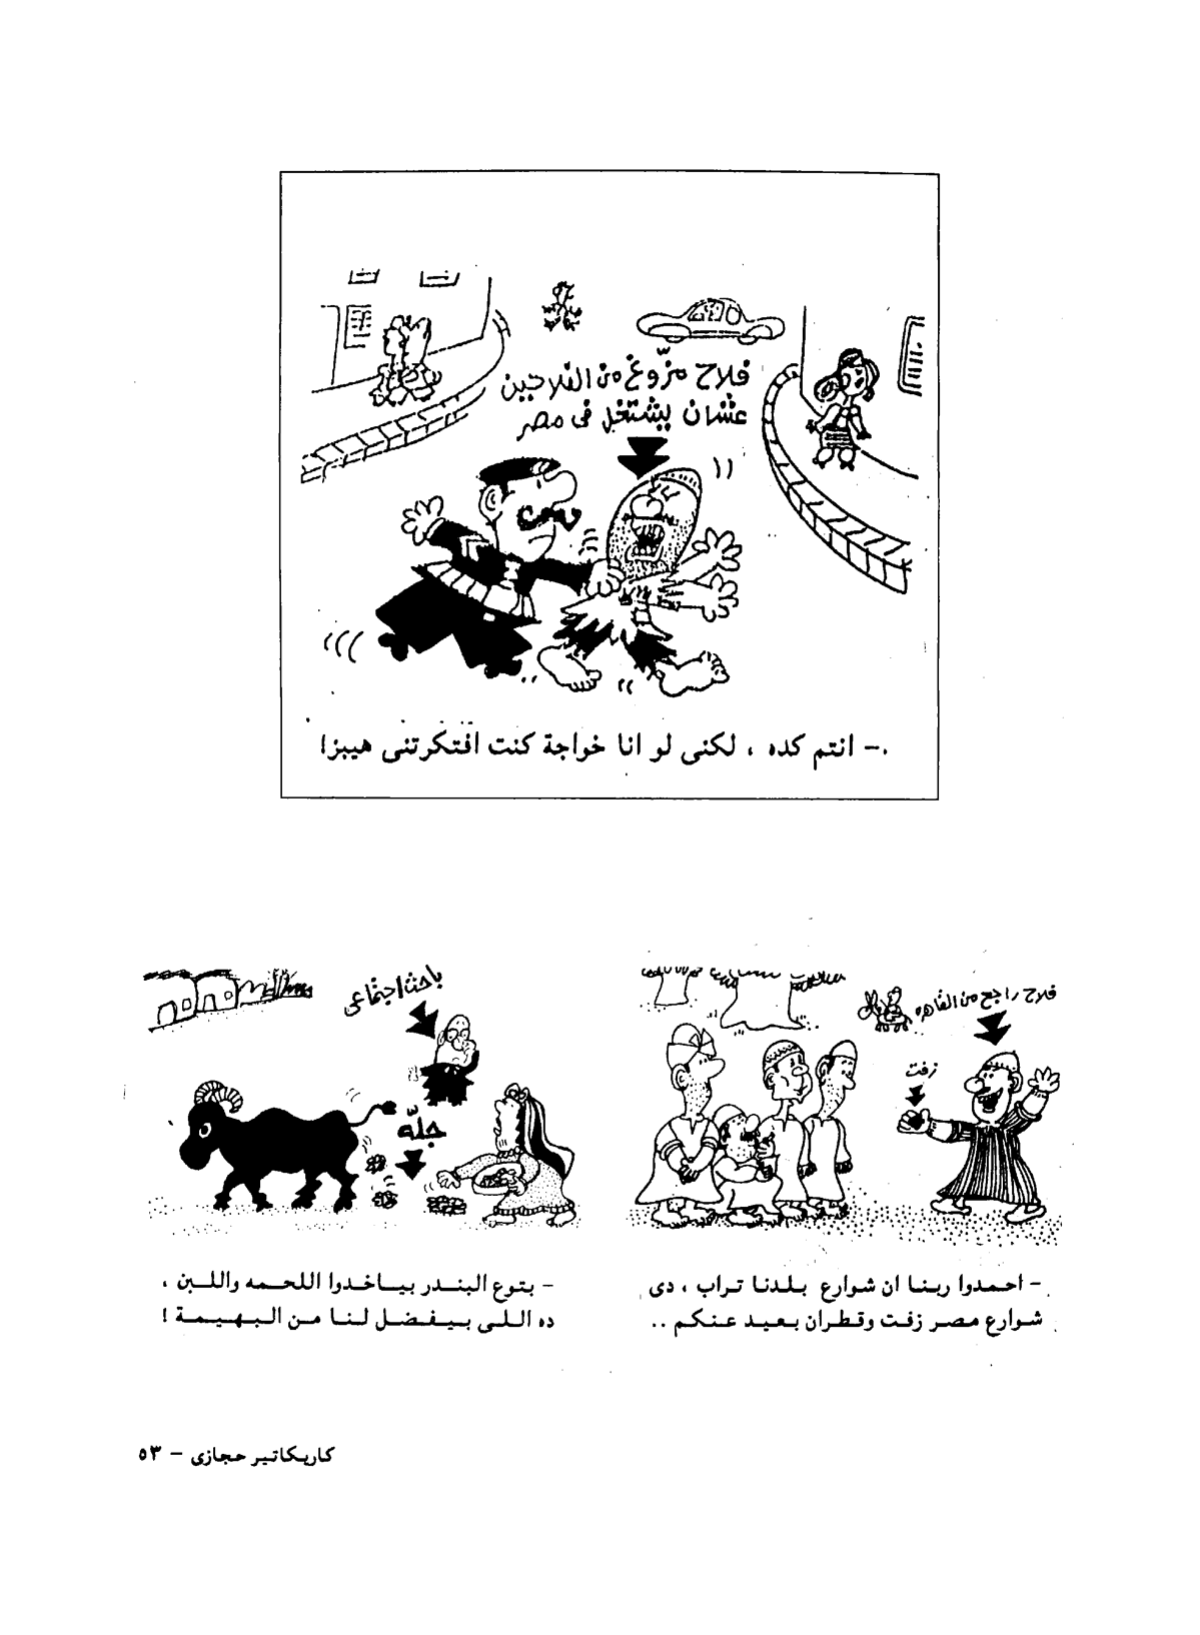 فلاح مزّوغ من الفلاحين
عشان يشتغل فى مصر
- انتم كده ، لكنى لو انا خواجة كنت افتكرتنى هيبز!
فلاح راجع من القاهره
زفت
- احمدوا ربنا ان شوارع بلدنا تراب ، دى
شوارع مصر زفت وقطران بعيد عنكم ..
باحث اجتماعى
جلّه
- بتوع البندر بياخدوا اللحمه واللبن ،
ده اللى بيفضل لنا من البهيمة !
كاريكاتير حجازى - ٥٣